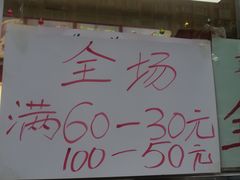 全场
满60-30元
100-50元